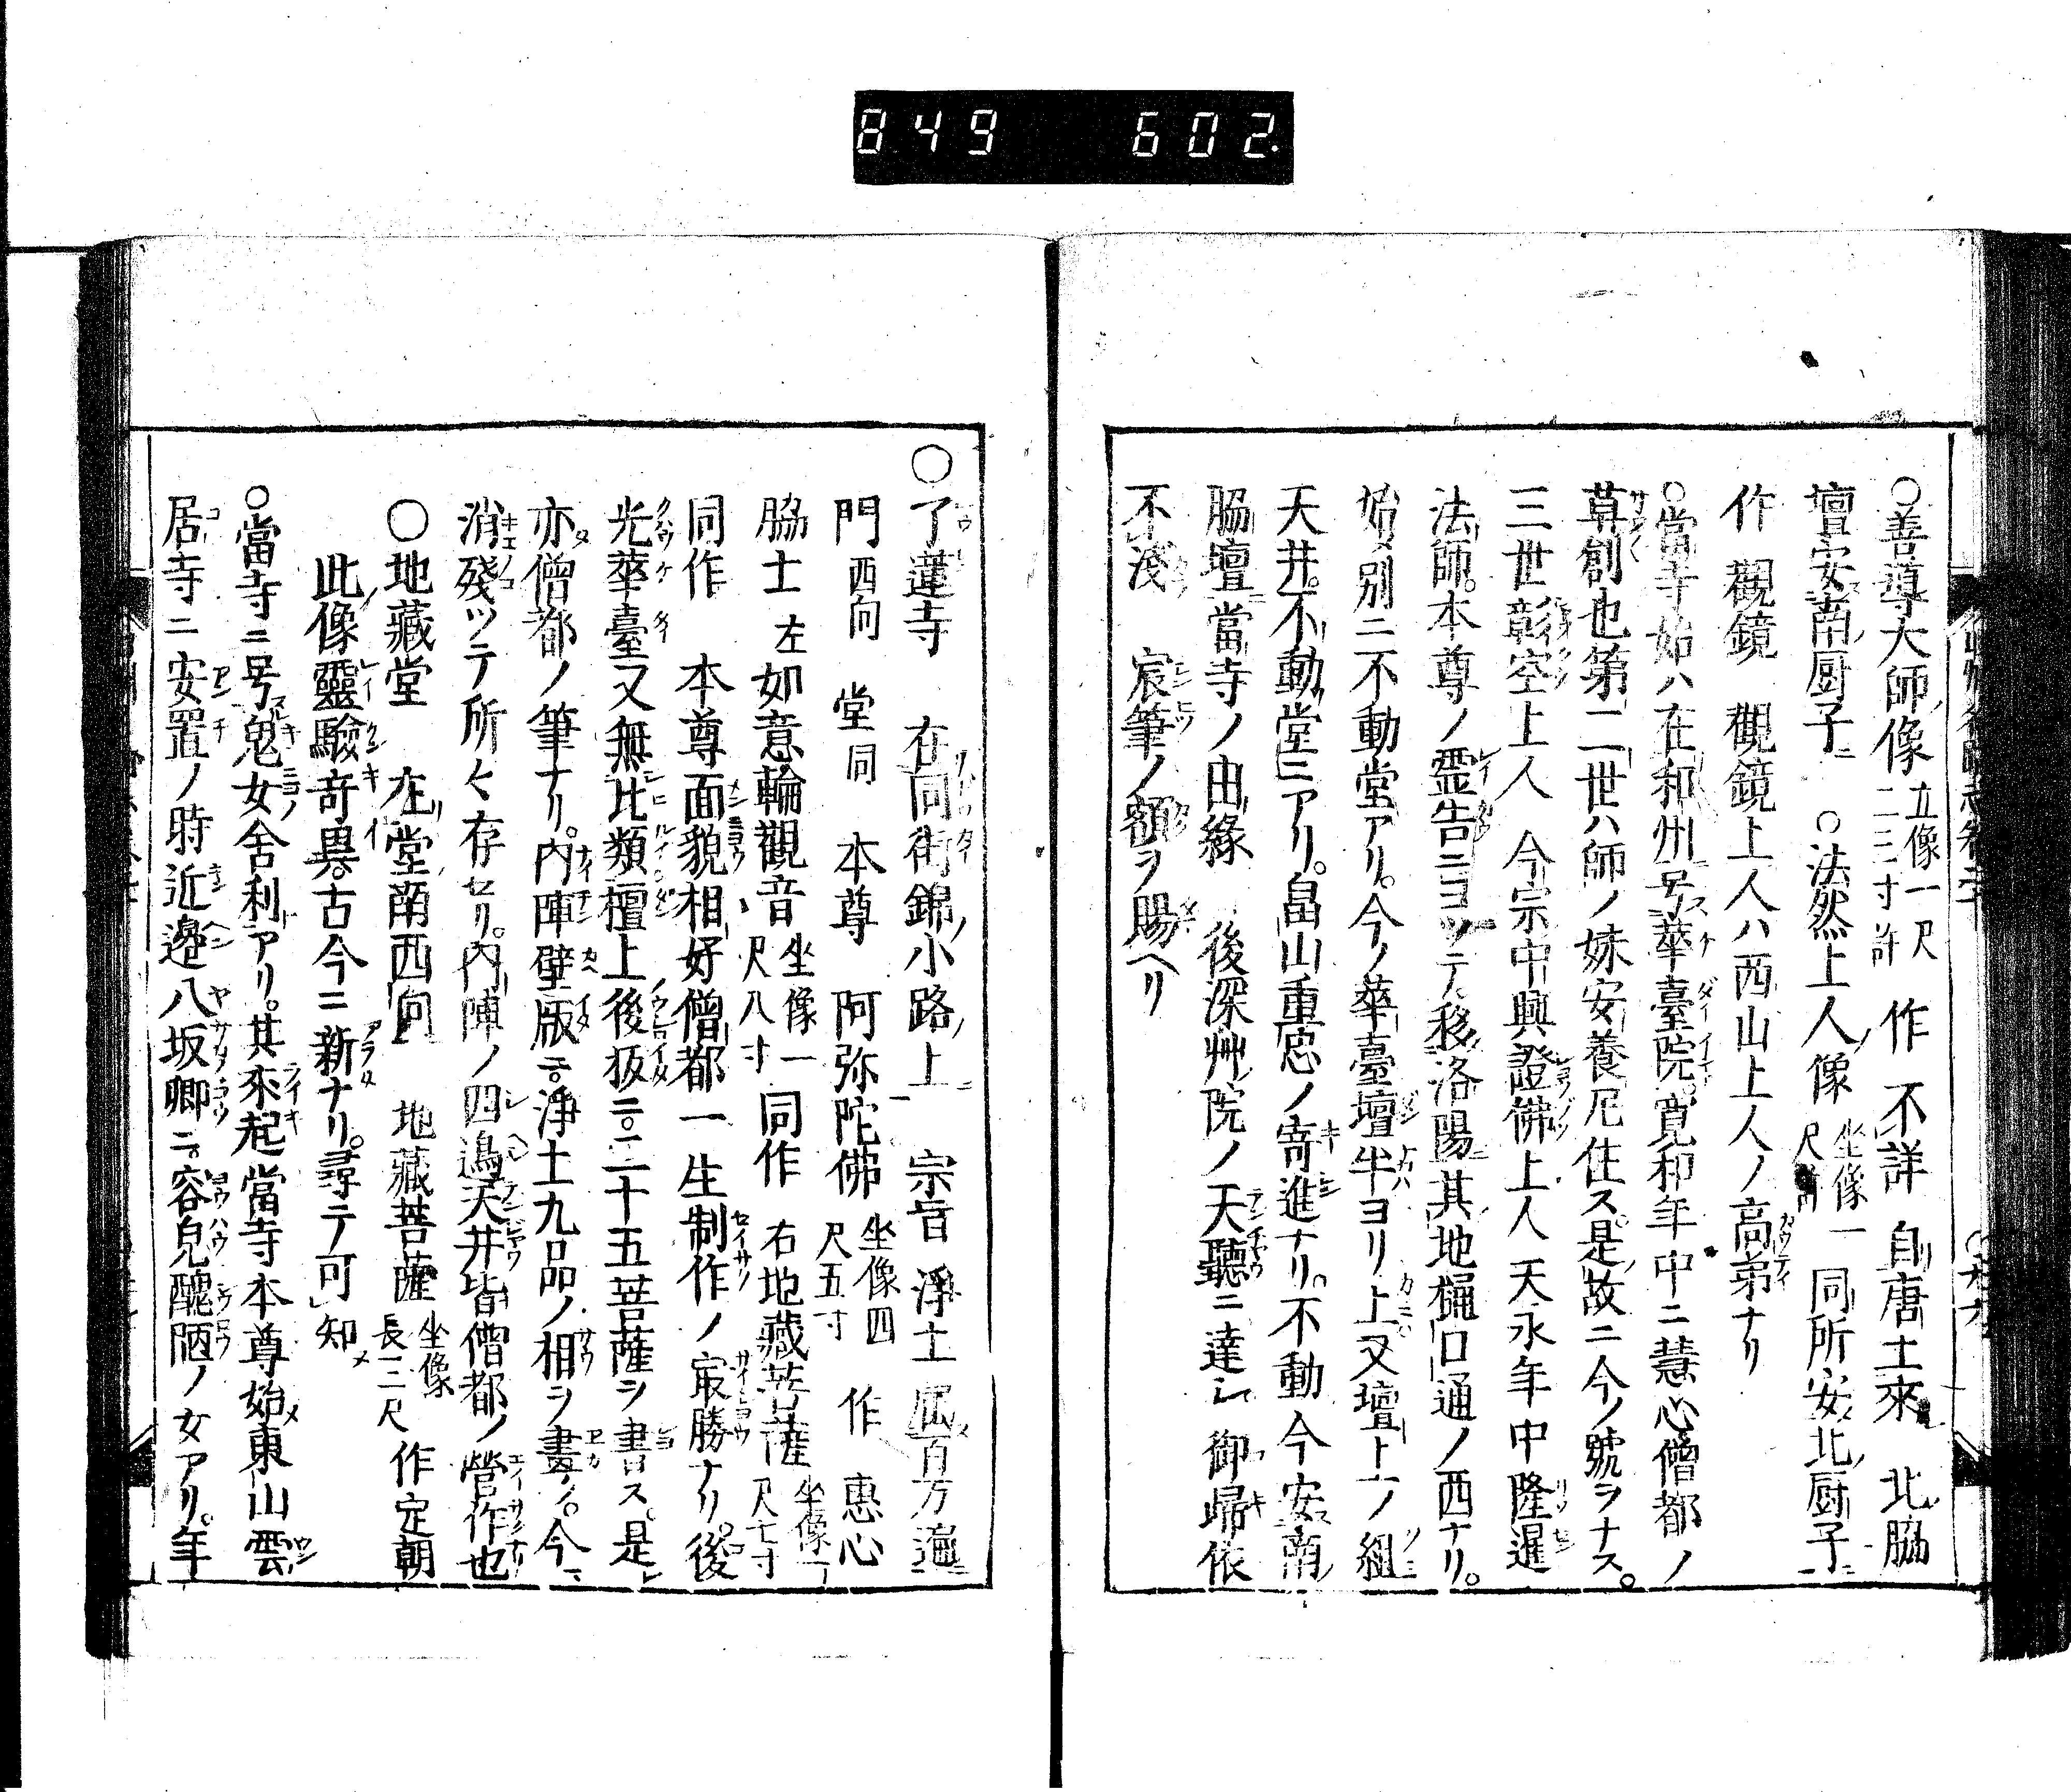 849 602.
○善導大師像 立像一尺二三寸許 作 不詳 自唐土來 北脇
壇安南厨子 ○法然上人像 坐像一尺 同所安北厨子
作 觀鏡 觀鏡上人ハ西山上人ノ高弟ナリ
○當寺始ハ在和州号華臺院寛和年中ニ慧心僧都ノ
草創也第二世ハ師ノ妹安養尼住ス是故ニ今ノ號ヲナス
三世彰空上人 今宗中興證佛上人 天永年中隆暹
法師本尊ノ霊告ニヨツテ移洛陽其地樋口通ノ西ナリ
始メ別ニ不動堂アリ今ノ華臺壇半ヨリ上又壇上ノ組
天井不動堂ニアリ畠山重忠ノ寄進ナリ不動今安南
脇壇當寺ノ由縁 後深艸院ノ天聽ニ達シ 御歸依
不淺 宸筆ノ額ヲ賜ヘリ
○了蓮寺 在同街錦小路上 宗旨 淨土 属百万遍
門 西向 堂 同 本尊 阿弥陀佛 坐像四尺五寸 作 惠心
脇士 左如意輪觀音 坐像一尺八寸 同作 右地藏菩薩 坐像一尺七寸
同作 本尊面貌相好僧都一生制作ノ最勝ナリ後
光華臺又無比類檀上後板ニ二十五菩薩ヲ書ス是
亦僧都ノ筆ナリ内陣壁版ニ淨土九品ノ相ヲ畫ク今
消殘ツテ所々存セリ内陣ノ四邊天井皆僧都ノ營作也
○地藏堂 在堂南西向 地藏菩薩 坐像長三尺 作定朝
此像靈驗奇異古今ニ新ナリ尋テ可知
○當寺ニ号鬼女舍利アリ其來起當寺本尊始東山雲
居寺ニ安置ノ時近邊八坂郷ニ容皃醜陋ノ女アリ年